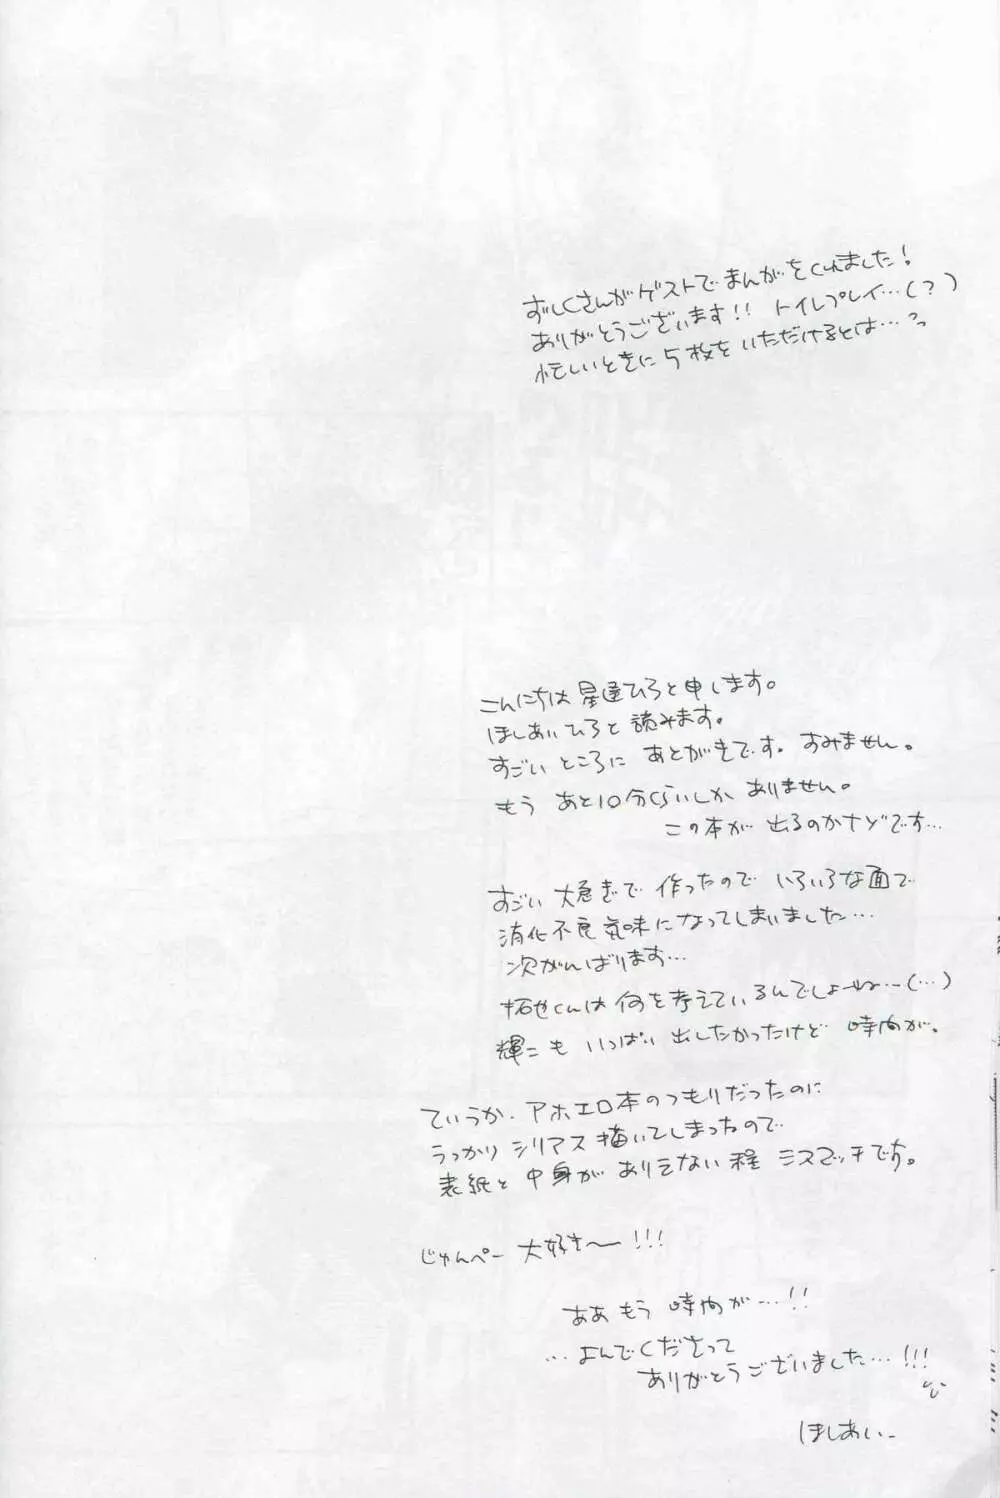 ずしCさんがゲストでまんがをくれました!
ありがとうございます!! トイレプレイ…(?)
忙しいときに5枚をいただけるとは…
こんにちは星逢ひろと申します。
ほしあいひろと読みます。
すごいところにあとがきです。すみません。
もうあと10分くらいしかありません。
この本が出るのかナゾです…
すごい大急ぎで作ったのでいろいろな面で
消化不良気味になってしまいました…
次がんばります…
拓也くんは何を考えているんでしょーねー(…)
輝二もいっぱい出したかったけど時間が。
ていうか、アホエロ本のつもりだったのに
うっかりシリアス描いてしまったので
表紙と中身がありえない程ミスマッチです。
じゅんぺー大好き〜!!!
ああもう時間が…!!
…よんでくださって
ありがとうございました…!!!
ほしあい